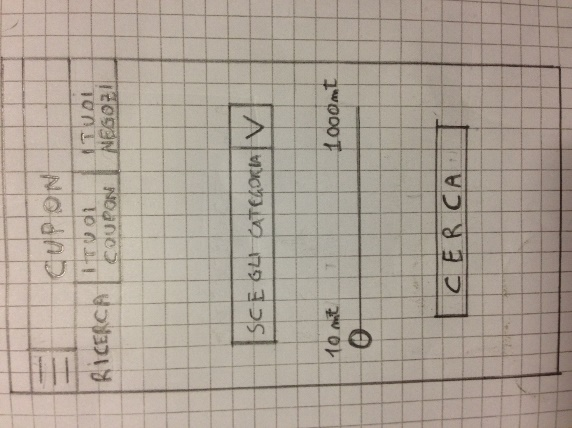 CUPON
RICERCA
I TUOI
COUPON
I TUOI
NEGOZI
SCEGLI CATEGORIA V
10 mt
1000mt
CERCA